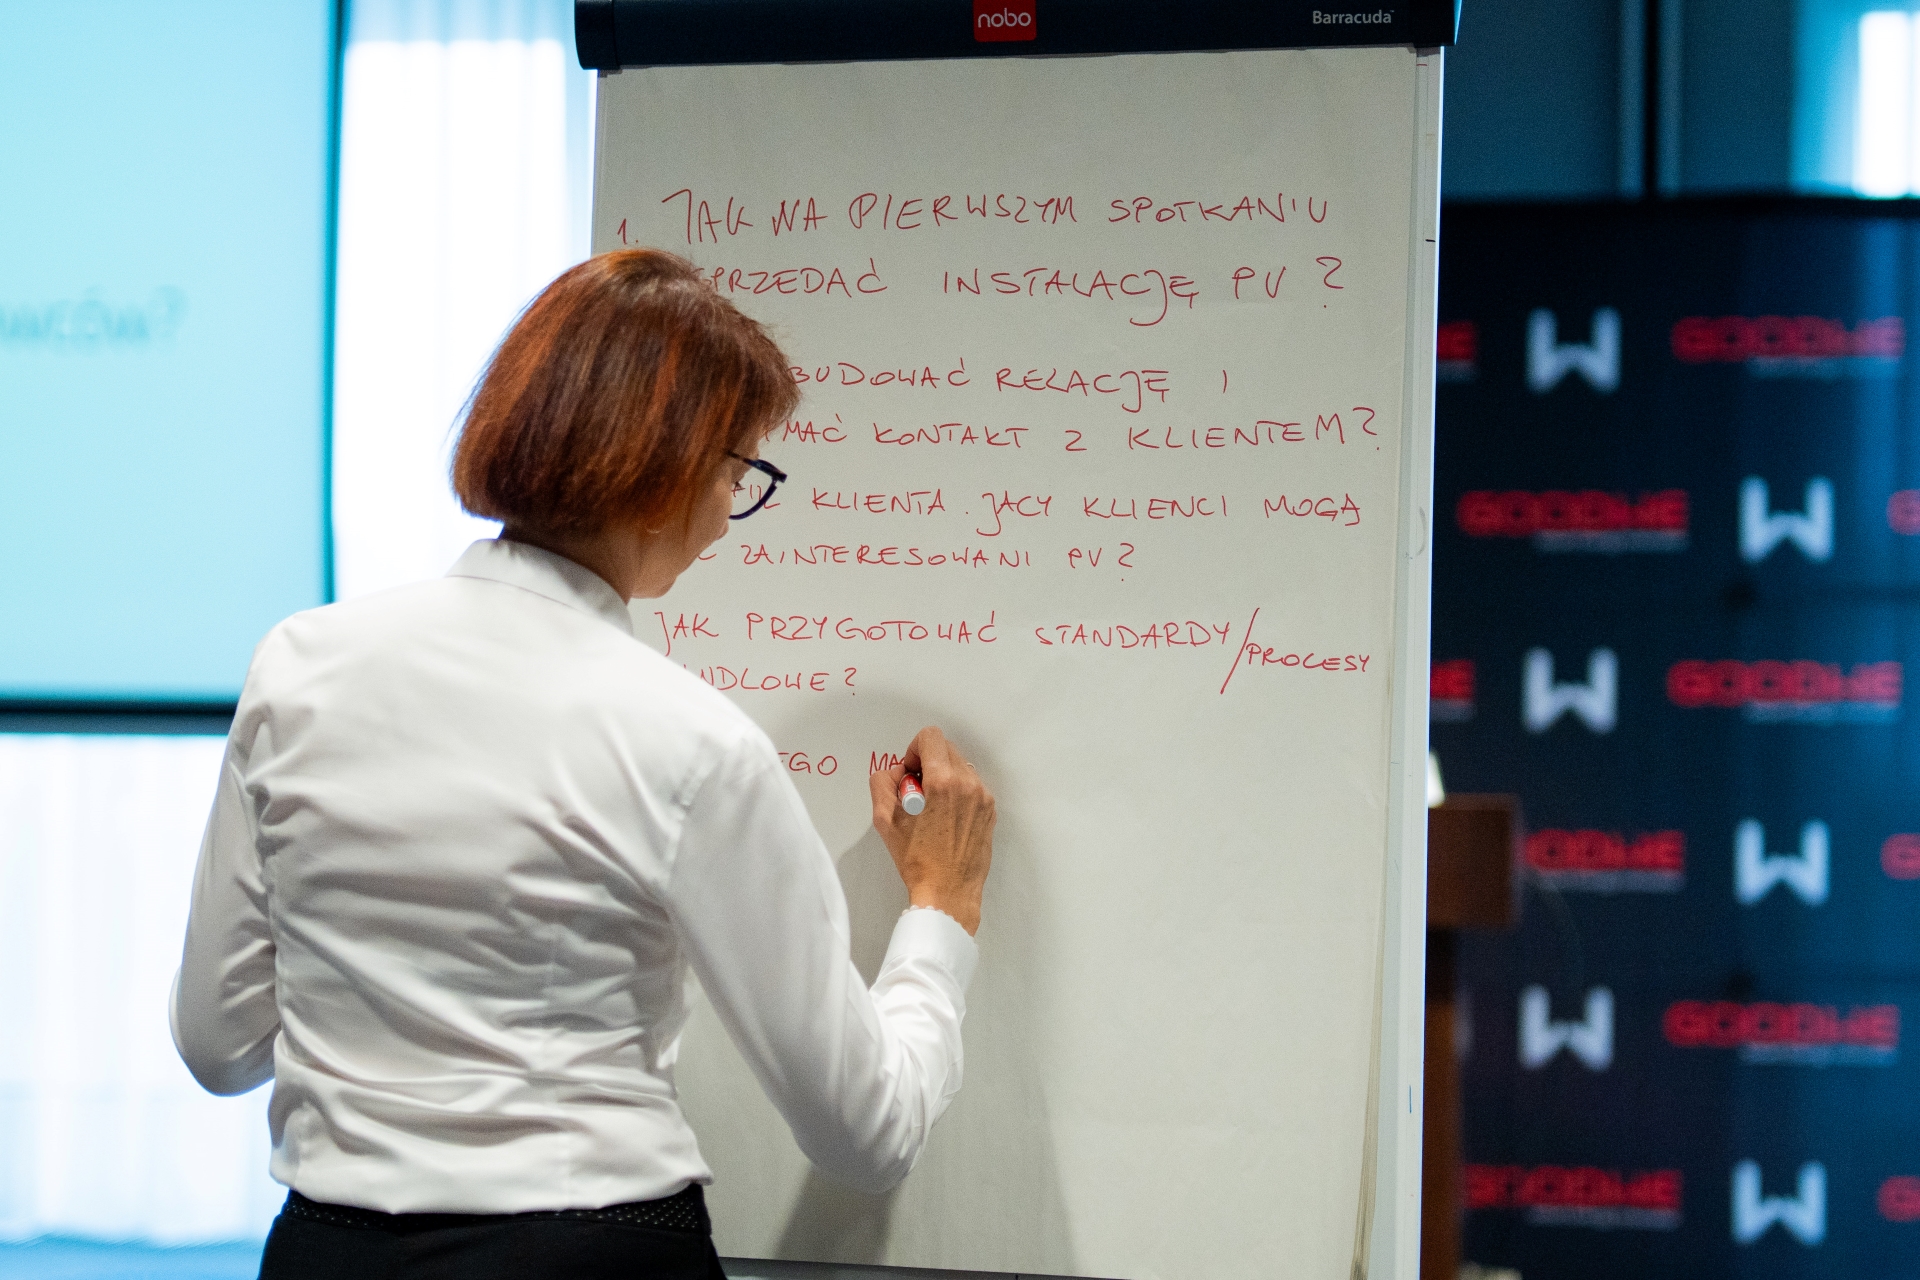 nobo
Barracuda
1. JAK NA PIERWSZYM SPOTKANIU
SPRZEDAĆ INSTALACJĘ PV ?
BUDOWAĆ RELACJĘ I
MAĆ KONTAKT Z KLIENTEM?
KLIENTA. JACY KLIENCI MOGĄ
ZAINTERESOWANI PV?
JAK PRZYGOTOWAĆ STANDARDY/PROCESY
NDLOWE?
EGO MA
GOODWE
GOODWE
GOODWE
GOODWE
GOODWE
GOODWE